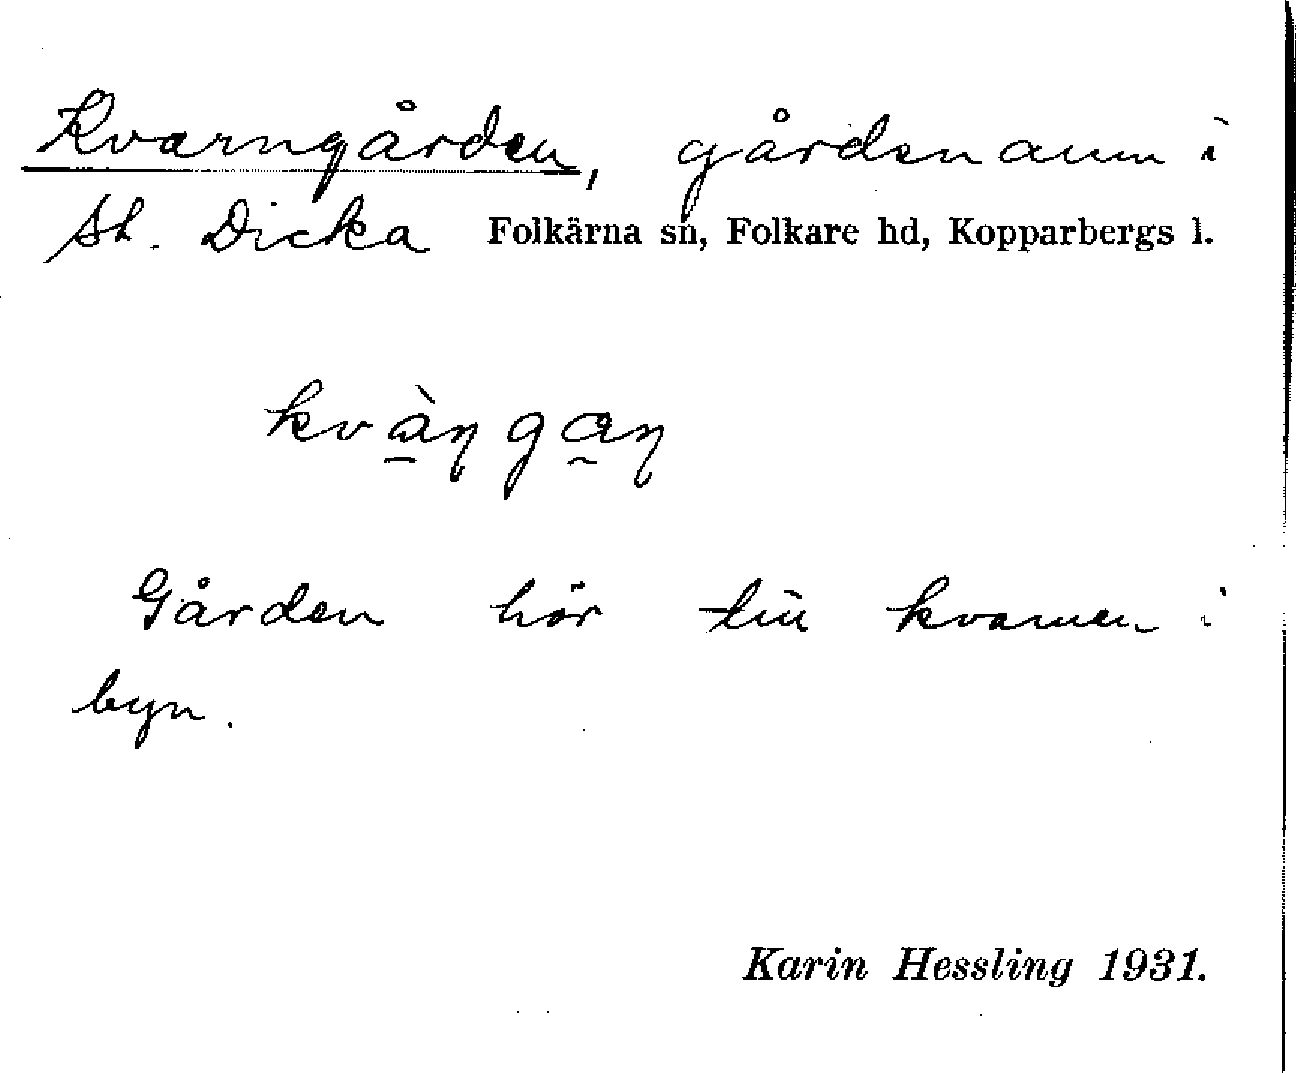 Kvarngården, gårdsnamn i
St. Dicka Folkärna sn, Folkare hd, Kopparbergs l.
Gården hör till kvarnen i
byn.
Karin Hessling 1931.